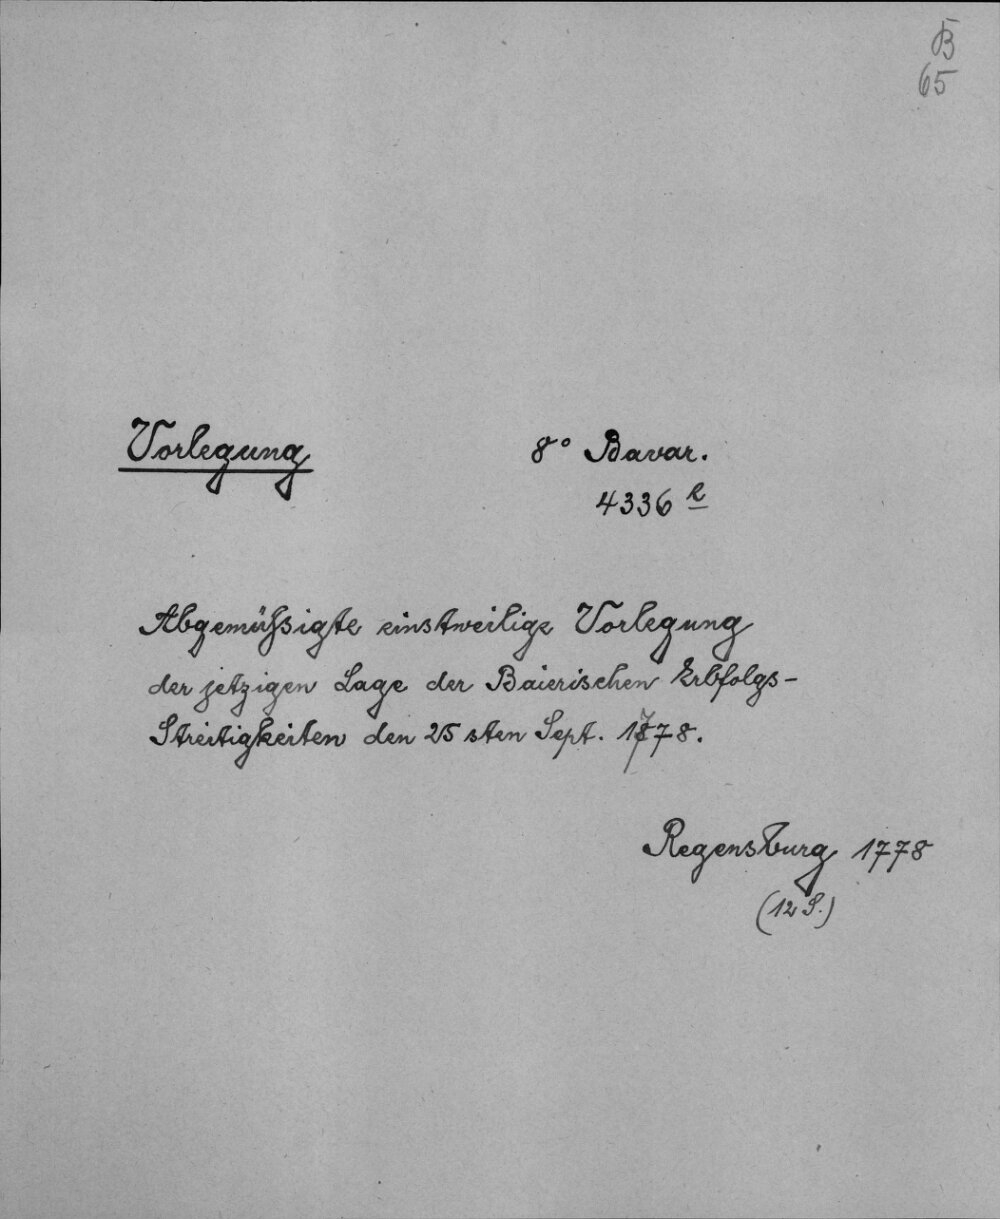 B
65
Vorlegung
8° Bavar.
4336 e
Abgemüßsigte einstweilige Vorlegung
der jetzigen Lage der Baierischen Erbfolgs-
Streitigkeiten den 25 sten Sept. 1778.
Regensburg 1778
(12 S.)